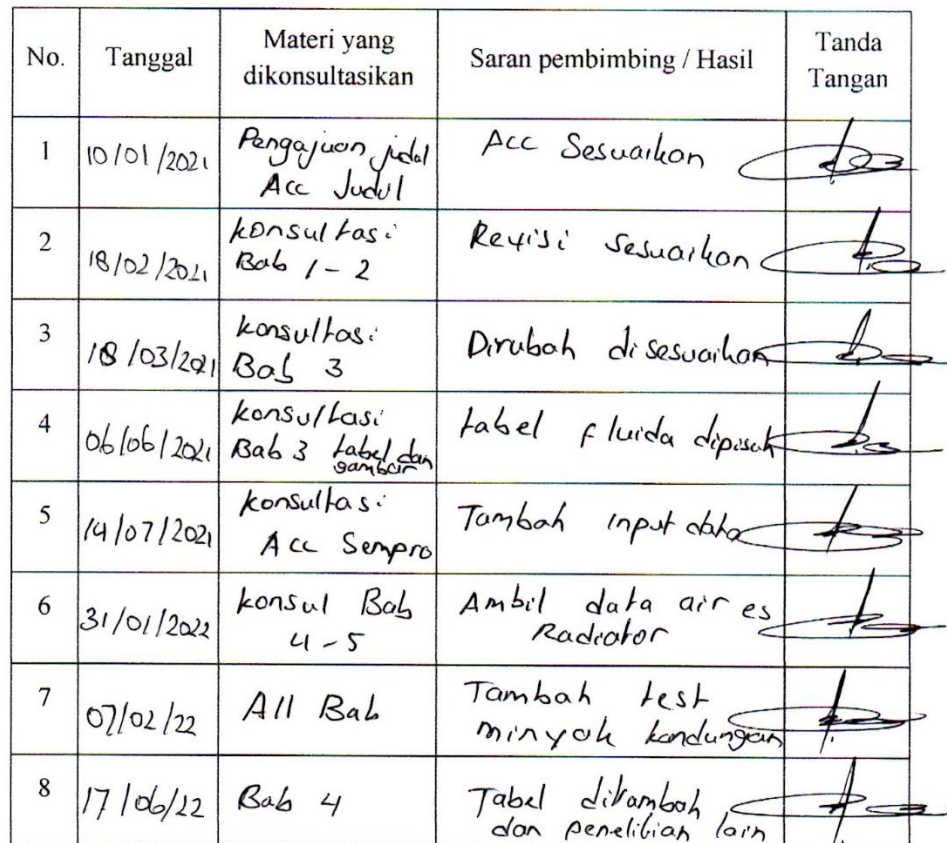 No. Tanggal Materi yang dikonsultasikan Saran pembimbing / Hasil Tanda Tangan
1 10/01/2021 Pengajuan judul Acc Sesuaikan
Acc Judul
2 18/02/2021 konsultasi Revisi Sesuaikan
Bab 1-2
3 18/03/2021 konsultasi Dirubah disesuaikan
Bab 3
4 06/06/2021 konsultasi tabel fluida dipisah
Bab 3 tabel dan gambar
5 14/07/2021 konsultasi Tambah input data
Acc Sempro
6 31/01/2022 konsul Bab Ambil data air es
4-5 Radiator
7 07/02/22 All Bab Tambah test
minyak kandungan
8 17/06/22 Bab 4 Tabel ditambah
dan penelitian lain